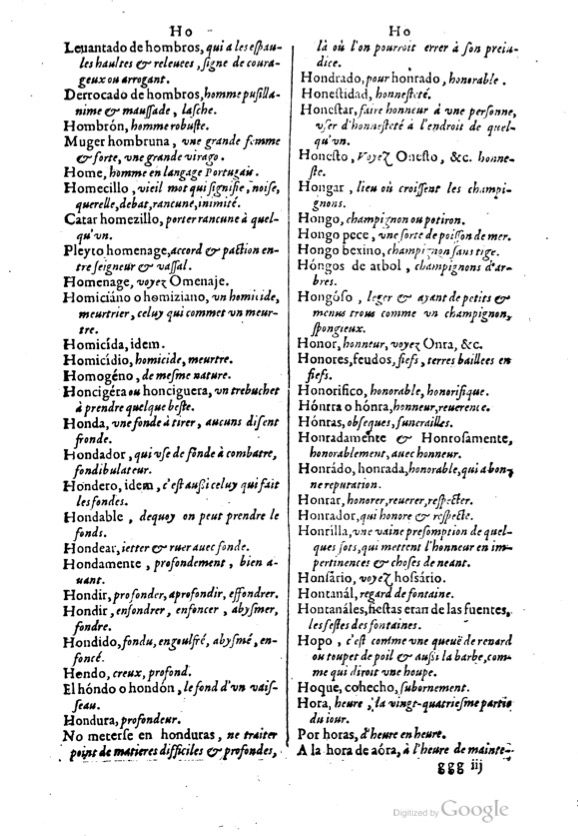 Ho
Leuantado de hombros, qui a les eſpau-
les haultes & releuees, ſigne de coura-
geux ou arrogant.
Derrocado de hombros, homme puſilla-
nime & mauſſade, laſche.
Hombrón, homme robuſte.
Muger hombruna, vne grande femme
& forte, vne grande virago.
Home, homme en langage Portugais.
Homecillo, vieil mot qui ſignifie, noiſe,
querelle, debat, rancune, inimité.
Catar homezillo, porter rancune à quel-
qu'vn.
Pleyto homenage, accord & paction en-
tre ſeigneur & vaſſal.
Homenage, voyez Omenaje.
Homiciáno o homiziano, vn homicide,
meurtrier, celuy qui commet vn meur-
tre.
Homicída, idem.
Homicídio, homicide, meurtre.
Homogéno, de meſme nature.
Honcigéra ou honciguera, vn trebuchet
à prendre quelque beſte.
Honda, vne fonde à tirer, aucuns diſent
fronde.
Hondador, qui vſe de fonde à combatre,
fondibulateur.
Hondero, idem, c'eſt auſſi celuy qui fait
les fondes.
Hondable, dequoy on peut prendre le
fonds.
Hondear, ietter & ruer auec fonde.
Hondamente, profondement, bien a-
uant.
Hondir, profonder, aprofondir, effondrer.
Hondir, enfondrer, enfoncer, abyſmer,
fondre.
Hondido, fondu, engoulfré, abyſmé, en-
foncé.
Hendo, creux, profond.
El hóndo o hondón, le fond d'vn vaiſ-
ſeau.
Hondura, profondeur.
No meterſe en honduras, ne traiter
point de matieres difficiles & profondes,
Ho
là où l'on pourroit errer à ſon preiu-
dice.
Hondrado, pour honrado, honorable.
Honeſtidad, honneſteté.
Honeſtar, faire honneur à vne perſonne,
vſer d'honneſteté à l'endroit de quel-
qu'vn.
Honeſto, Voyez Oneſto, &c. honne-
ſte.
Hongar, lieu où croiſſent les champi-
gnons.
Hongo, champignon ou potiron.
Hongo pece, vne ſorte de poiſſon de mer.
Hongo bexino, champignon ſans tige.
Hóngos de arbol, champignons d'ar-
bres.
Hongóſo, leger & ayant de petits &
menus trous comme vn champignon,
ſpongieux.
Honor, honneur, voyez Onra, &c.
Honores, feudos, fiefs, terres baillees en
fiefs.
Honorifico, honorable, honorifique.
Hóntra o hónra, honneur, reuerence.
Hóntas, obſeques, funerailles.
Honradamente & Honroſamente,
honorablement, auec honneur.
Honrádo, honrada, honorable, qui a bon-
ne reputation.
Honrar, honorer, reuerer, reſpecter.
Honrador, qui honore & reſpecte.
Honrilla, vne vaine preſomption de quel-
ques ſots, qui mettent l'honneur en im-
pertinences & choſes de neant.
Honſário, voyez hoſſário.
Hontanál, regard de fontaine.
Hontanáles, fieſtas eran de las fuentes,
les feſtes des fontaines.
Hopo, c'eſt comme vne queuë de renard
ou toupet de poil & auſſi la barbe, com-
me qui diroit vne houpe.
Hoque, cohecho, ſubornement.
Hora, heure, la vingt-quatrieſme partie
du iour.
Por horas, d'heure en heure.
A la hora de aóra, à l'heure de mainte-
ggg iij
Digitized by Google